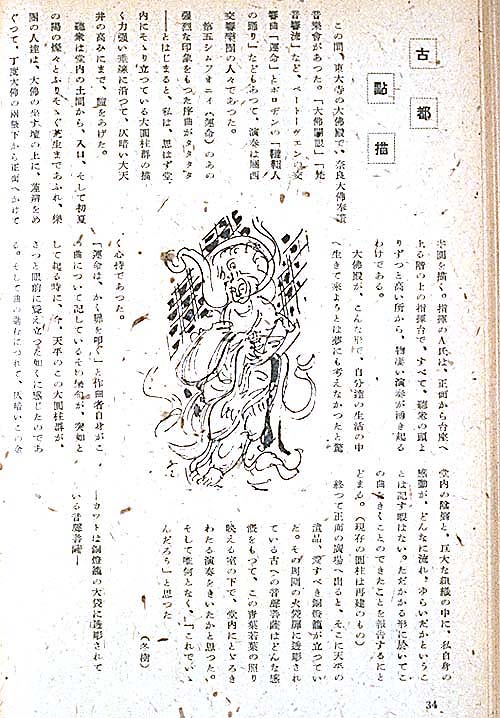 古都
點描
この間、東大寺の大佛殿で、奈良大佛奉讃
音樂會があつた。「大佛開眼」「梵
音響流」など、ベートーヴェンの交
響曲「運命」とボロヂンの「韃靼人
の踊り」などもあつて、演奏は關西
交響樂團の人々であつた。
第五シムフォニイ(運命)のあの
强烈な印象をもつた序曲がタタタタ
―とはじまると、私は、思はず堂
内にそゝり立つている大圓柱群の描
く力强い垂線に沿つて、仄暗い大天
井の高みにまで、瞳をあげた。
聽衆は堂内の土間から、入口、そして初夏
の陽の燦々とふりそゝぐ芝生まであふれ、樂
團の人達は、大佛の坐す壇の上に、蓮瓣をめ
ぐつて、丁度大佛の兩膝下から正面へかけて
半圓を描く。指揮のA氏は、正面から台座へ
上る階の上の指揮台で、すべて、聽衆の頭よ
りずつと高い所から、物凄い演奏が湧き起る
わけである。
大佛殿が、こんな形で、自分達の生活の中
へ生きて來ようとは夢にも考えなかつたと驚
く心持であつた。
「運命は、かく扉を叩く」と作曲者自身がこ
の曲について記しているその樂句が、突如と
して起る時に、今、天平のこの大圓柱群が、
さつと眼前に聳え立つた如くに感じたのであ
る。そして曲の進むにつれて、仄暗いこの金
堂内の陰翳と、巨大な組織の中に、私自身の
感動が、どんなに流れ、ゆらいだかというこ
とは記す暇はない。ただかかる形に於いてこ
の曲をきくことのできたことを報告するにと
どまる。(現存の圓柱は再建のもの)
終つて正面の廣場へ出ると、そこに天平の
遺品、愛すべき銅燈籠が立つてい
た。その周圍の火袋扉に透彫され
ている古への音聲菩薩はどんな感
慨をもつて、この青葉若葉の照り
映える室の下で、堂内にとどろき
わたる演奏をきいたかと思つた。
そして唯何となく、「これでいゝ
んだろう」と思つた
(冬樹)
―カツトは銅燈籠の火袋に透彫されて
いる音聲菩薩―
34